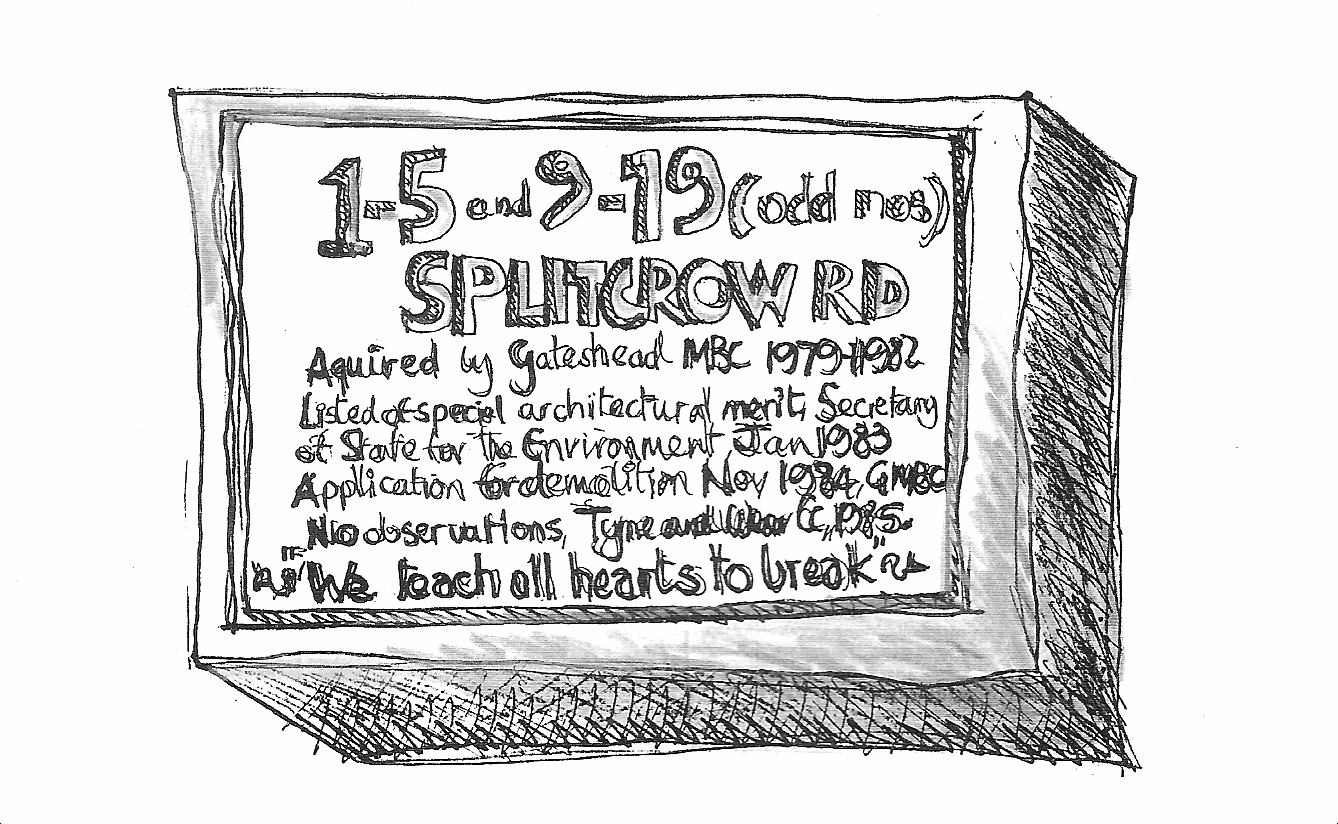 1-5 and 9-19 (odd nos)
SPLITCROW RD
Aquired by Gateshead MBC 1979-1982
Listed of special architectural merit, Secretary
of State for the Environment, Jan 1983
Application for demolition Nov 1984, GMBC
No observations, Tyne and Wear CC, 1985.
"We teach all hearts to break"